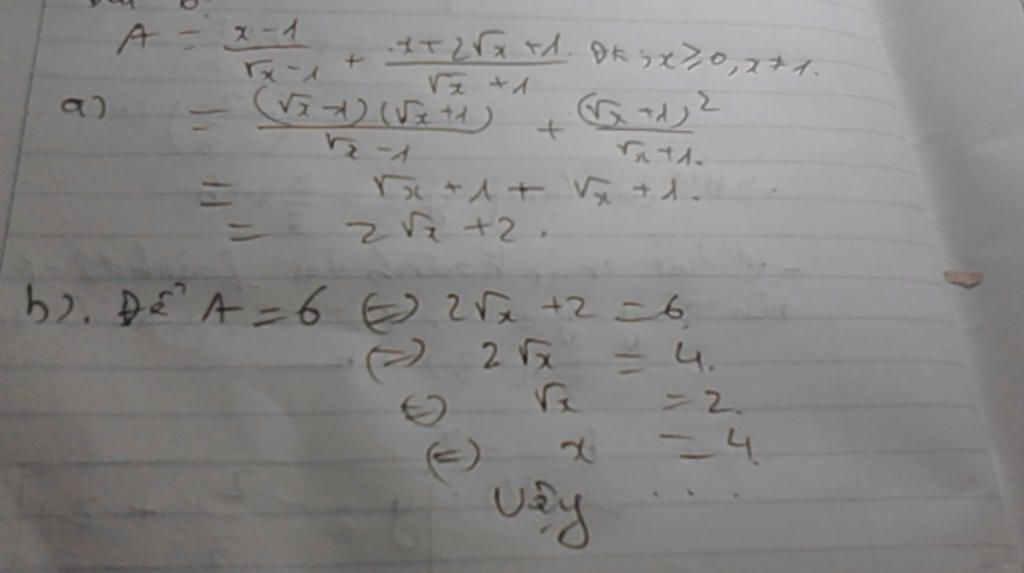 A = \frac{x-1}{\sqrt{x}-1} + \frac{x+2\sqrt{x}+1}{\sqrt{x}+1} ĐK: x ≥ 0, x ≠ 1.
a) = \frac{(\sqrt{x}-1)(\sqrt{x}+1)}{\sqrt{x}-1} + \frac{(\sqrt{x}+1)^2}{\sqrt{x}+1}.
= √x + 1 + √x + 1.
= 2√x + 2.
b). Để A = 6 (=) 2√x + 2 = 6.
(=) 2√x = 4.
(=) √x = 2.
(=) x = 4
Vậy ...